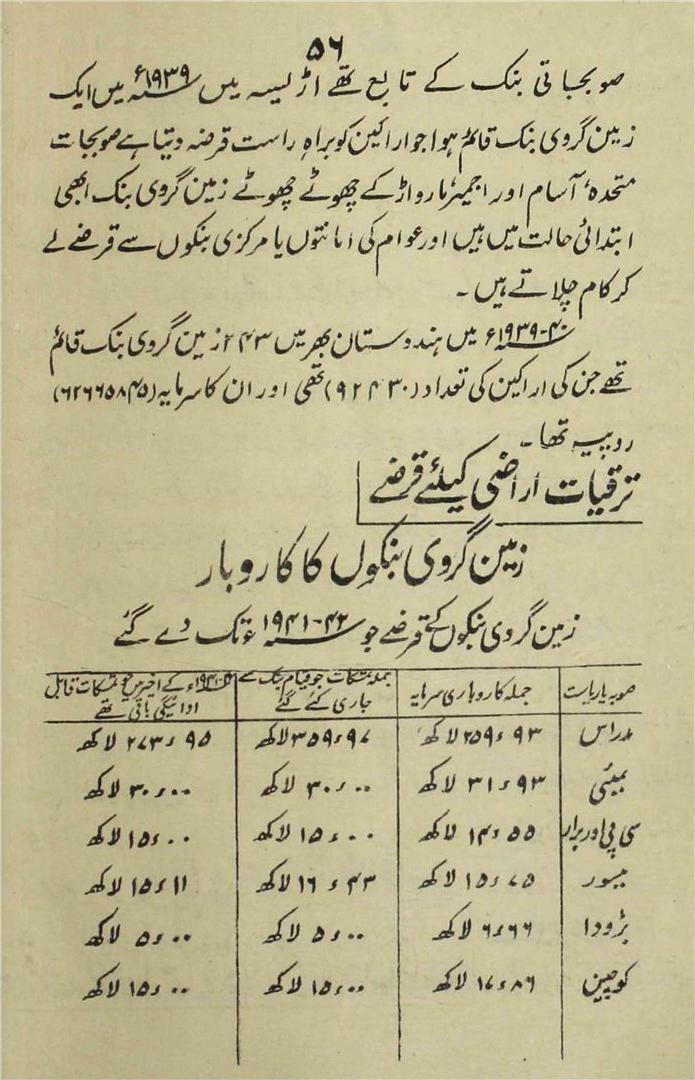 ۵۶
صوبجباتی بنک کے تابع تھے اڑلیسہ میں ۱۹۳۹ء میں ایک
زمین گروی بنک قائم ہوا جو اراکین کو براہِ راست قرضہ دیتا ہے صوبجات
متحدہ، آسام اور اجمیر مارواڑ کے چھوٹے چھوٹے زمین گروی بنک ابھی
ابتدائی حالت میں ہیں اور عوام کی امانتوں یا مرکزی بنکوں سے قرضے لے
کر کام چلاتے ہیں ۔
۴۰-۱۹۳۹ء میں ہندوستان بھر میں ۲۴۳ زمین گروی بنک قائم
تھے جن کی اراکین کی تعداد (۹۲۴۳۰) تھی اور ان کا سرمایہ (۶۲۶۶۵۸۴۵)
روپیہ تھا ۔
ترقیات اراضی کیلئے قرضے
زمین گروی بنکوں کا کاروبار
زمین گروی بنکوں کے قرضے جو ۴۲-۱۹۴۱ء تک دے گئے
صوبہ یا ریاست جملہ کاروباری سرمایہ جملہ تمسکات جو قیام بنک سے جاری کئے گئے کے اخیر میں جو تمسکات قابل ادائیگی باقی تھے
مدراس ۹۳ء۲۵۹ لاکھ ۹۷ء۳۵۹ لاکھ ۹۵ء۲۷۳ لاکھ
بمبئی ۹۳ء۳۱ لاکھ ۰۰ء۳۰ لاکھ ۰۰ء۳۰ لاکھ
سی پی اور برار ۵۵ء۱۴ لاکھ ۰۰ء۱۵ لاکھ ۰۰ء۱۵ لاکھ
میسور ۷۵ء۱۵ لاکھ ۴۳ء۱۶ لاکھ ۱۱ء۱۵ لاکھ
بڑودا ۶۶ء۶ لاکھ ۰۰ء۵ لاکھ ۰۰ء۵ لاکھ
کوچین ۸۶ء۱۷ لاکھ ۰۰ء۱۵ لاکھ ۰۰ء۱۵ لاکھ